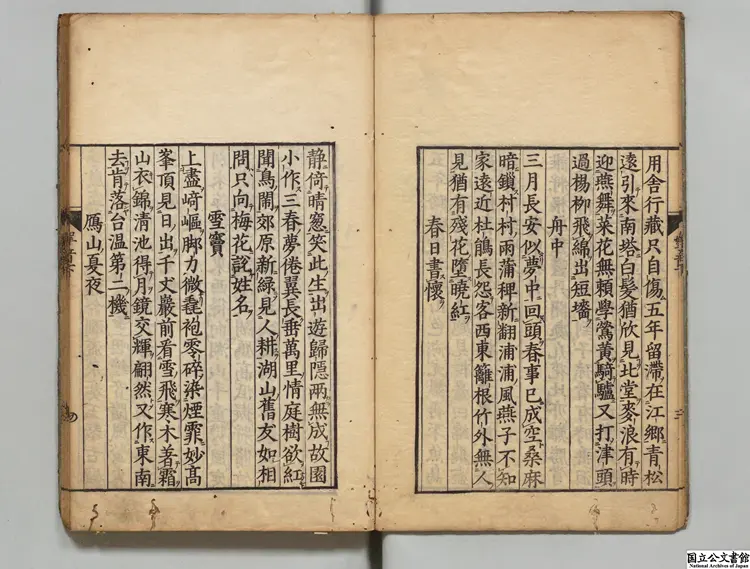 用舍行藏只自傷五年留滯在江鄉青松
遠引來南塔白髮猶欣見北堂麥浪有時
迎燕舞菜花無頼學鶯黄騎驢又打津頭
過楊柳飛綿出短墻
舟中
三月長安似夢中回頭春事已成空桑麻
暗鎖村村雨蒲稗新翻浦浦風燕子不知
家遠近杜鵑長怨客西東籬根竹外無人
見猶有殘花墮曉紅
春日書懷
靜倚晴窓笑此生出遊歸隱兩無成故園
小作三春夢倦翼長垂萬里情庭樹欲紅
聞鳥鬧郊原新綠見人耕湖山舊友如相
問只向梅花說姓名
雪竇
上盡﨑嶇脚力微毳袍零碎染煙霏妙高
峯頂見日出千丈巖前看雪飛寒木著霜
山衣錦清池得月鏡交輝翩然又作東南
去肯落台温第二機
鴈山夏夜
国立公文書館
National Archives of Japan